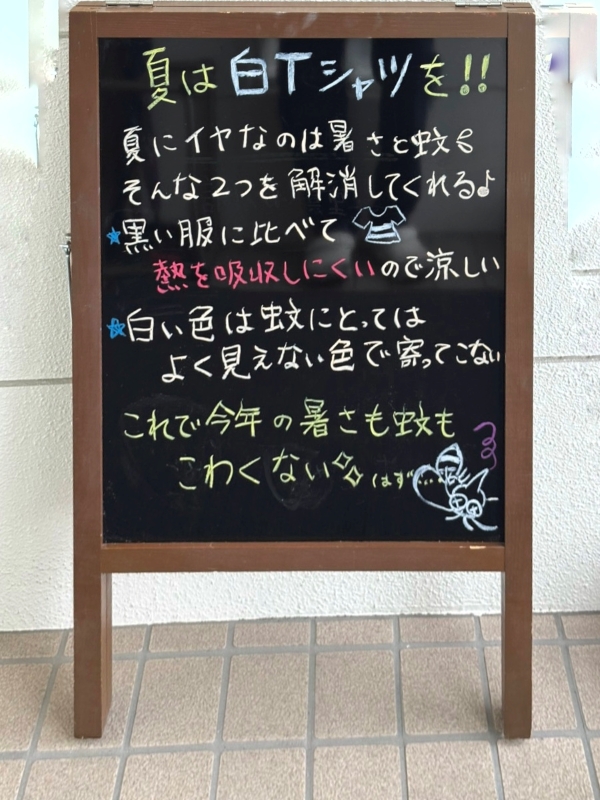 夏は白Tシャツを!!
夏にイヤなのは暑さと蚊
そんな2つを解消してくれる♪
★黒い服に比べて
熱を吸収しにくいので涼しい
★白い色は蚊にとっては
よく見えない色で寄ってこない
これで今年の暑さも蚊も
こわくない✨はず…